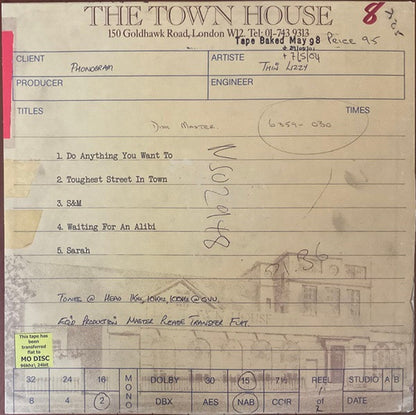 THE TOWN HOUSE
8
150 Goldhawk Road, London W12. Tel: 01-743 9313
Tape Baked May 98
CLIENT
PHONOGRAM
ARTISTE
+ 7/5/04
THIN LIZZY
PRODUCER
ENGINEER
TITLES
TIMES
DISK MASTER.
6359-030
1. Do Anything You Want To
2. Toughest Street In Town
3. S&M
4. Waiting For An Alibi
5. Sarah
NS02948
HOUSE
TONES @ HEAD 1KHz, 10KHz, 100Hz @ 0VU.
EQ'D PRODUCTION MASTER PLEASE TRANSFER FLAT.
This tape has
been
transferred
flat to
MO DISC
96khz, 24bit
32 24 16 MONO DOLBY 30 15 7½ REEL 1 STUDIO A B
8 4 2 DBX AES NAB CCIR of 2 DATE